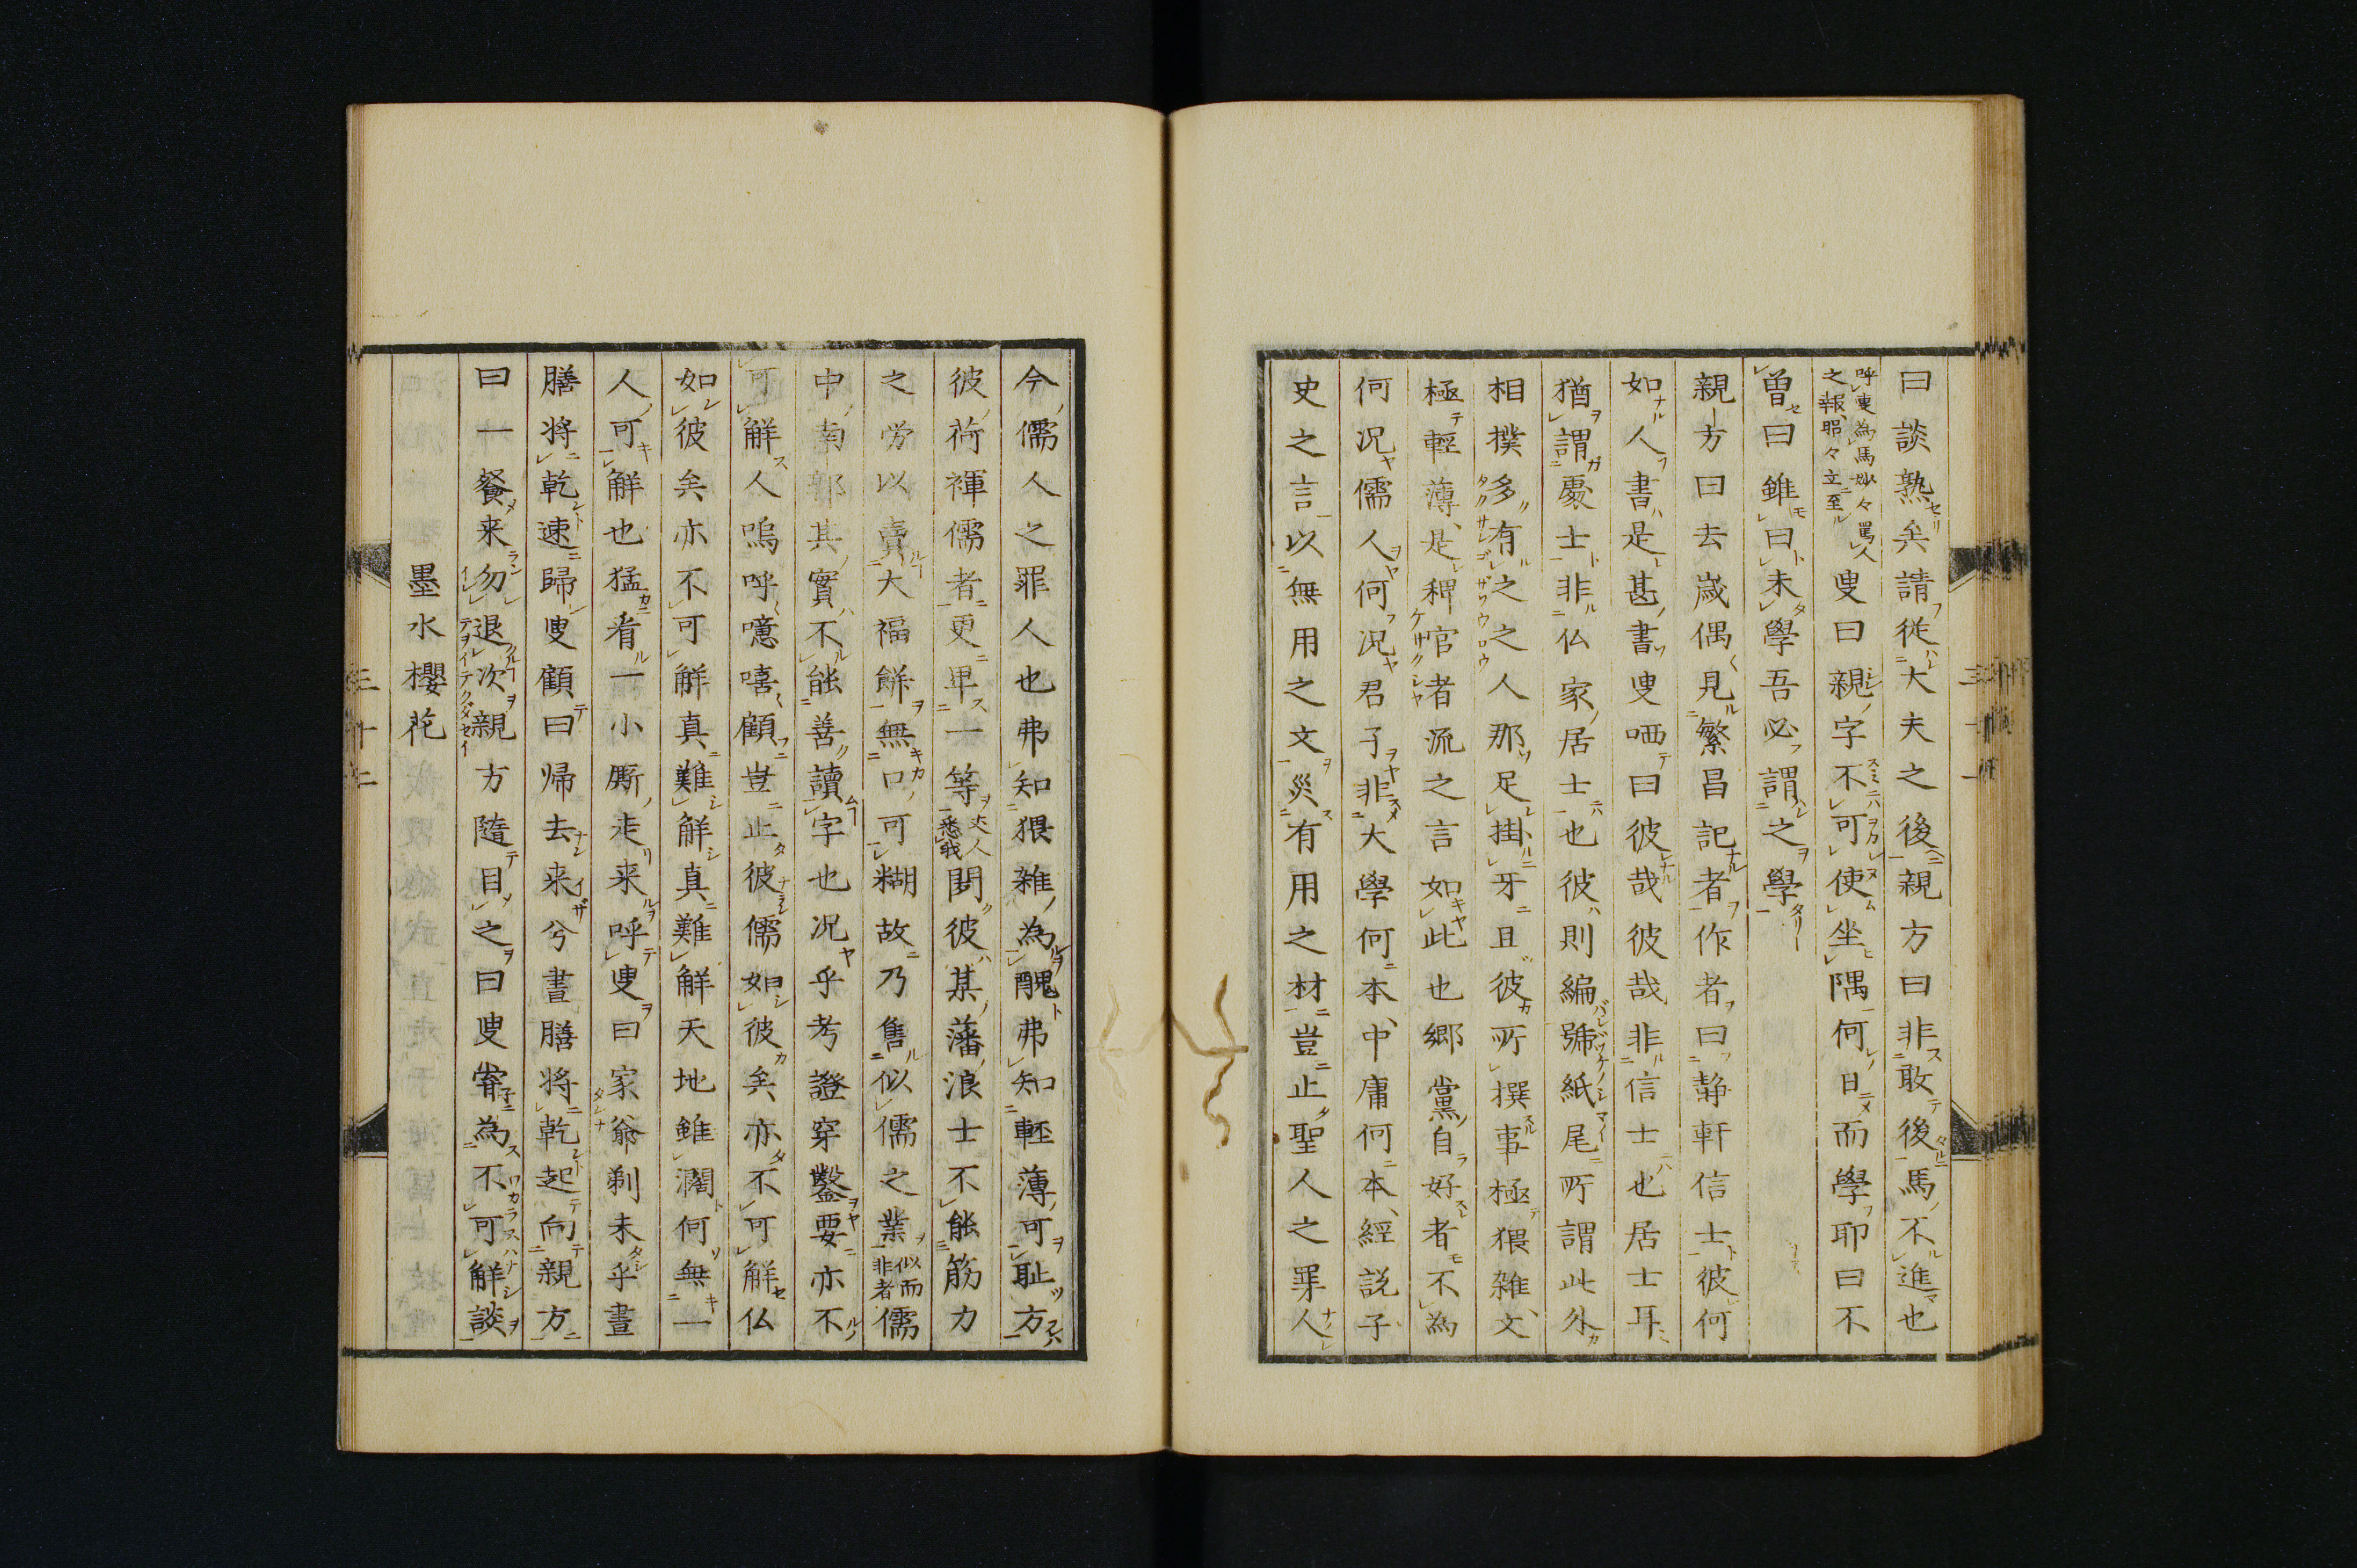 曰談熟矣請従大夫之後親方曰非敢後馬不進也
呼叟為馬妙々罵人
之報、昭々立至
叟曰親字不可使坐隅何日而學耶曰不
曽曰雖曰未學吾必謂之學
親方曰去歳偶見繁昌記者作者曰静軒信士彼何
如人書是甚書叟哂曰彼哉彼哉非信士也居士耳
猶謂處士非仏家居士也彼則編號紙尾所謂此外
相撲多有之之人那足掛牙且彼所撰事極猥雑文
極輕薄是稗官者流之言如此也郷黨自好者不為
何况儒人何况君子非大學何本中庸何本經説子
史之言以無用之文災有用之材豈止聖人之罪人
今儒人之罪人也弗知猥雑為醜弗知軽薄可耻方
彼荷褌儒者更卑一等
丈人
悉我
聞彼某藩浪士不能筋力
之労以賣大福餅無口可糊故乃售似儒之業
似而
非者
儒
中南郭其實不能善讀字也况乎考證穿鑿要亦不
可解人嗚呼噫嘻顧豈止彼儒如彼矣亦不可解仏
如彼矣亦不可解真難解真難解天地雖濶何無一
人可解也猛看一小厮走来呼叟曰家爺剃未乎晝
膳将乾速歸叟顧曰帰去来兮晝膳将乾起向親方
曰一餐来勿退次親方随目之曰叟甞為不可解談
墨水櫻花
三十一
三十二